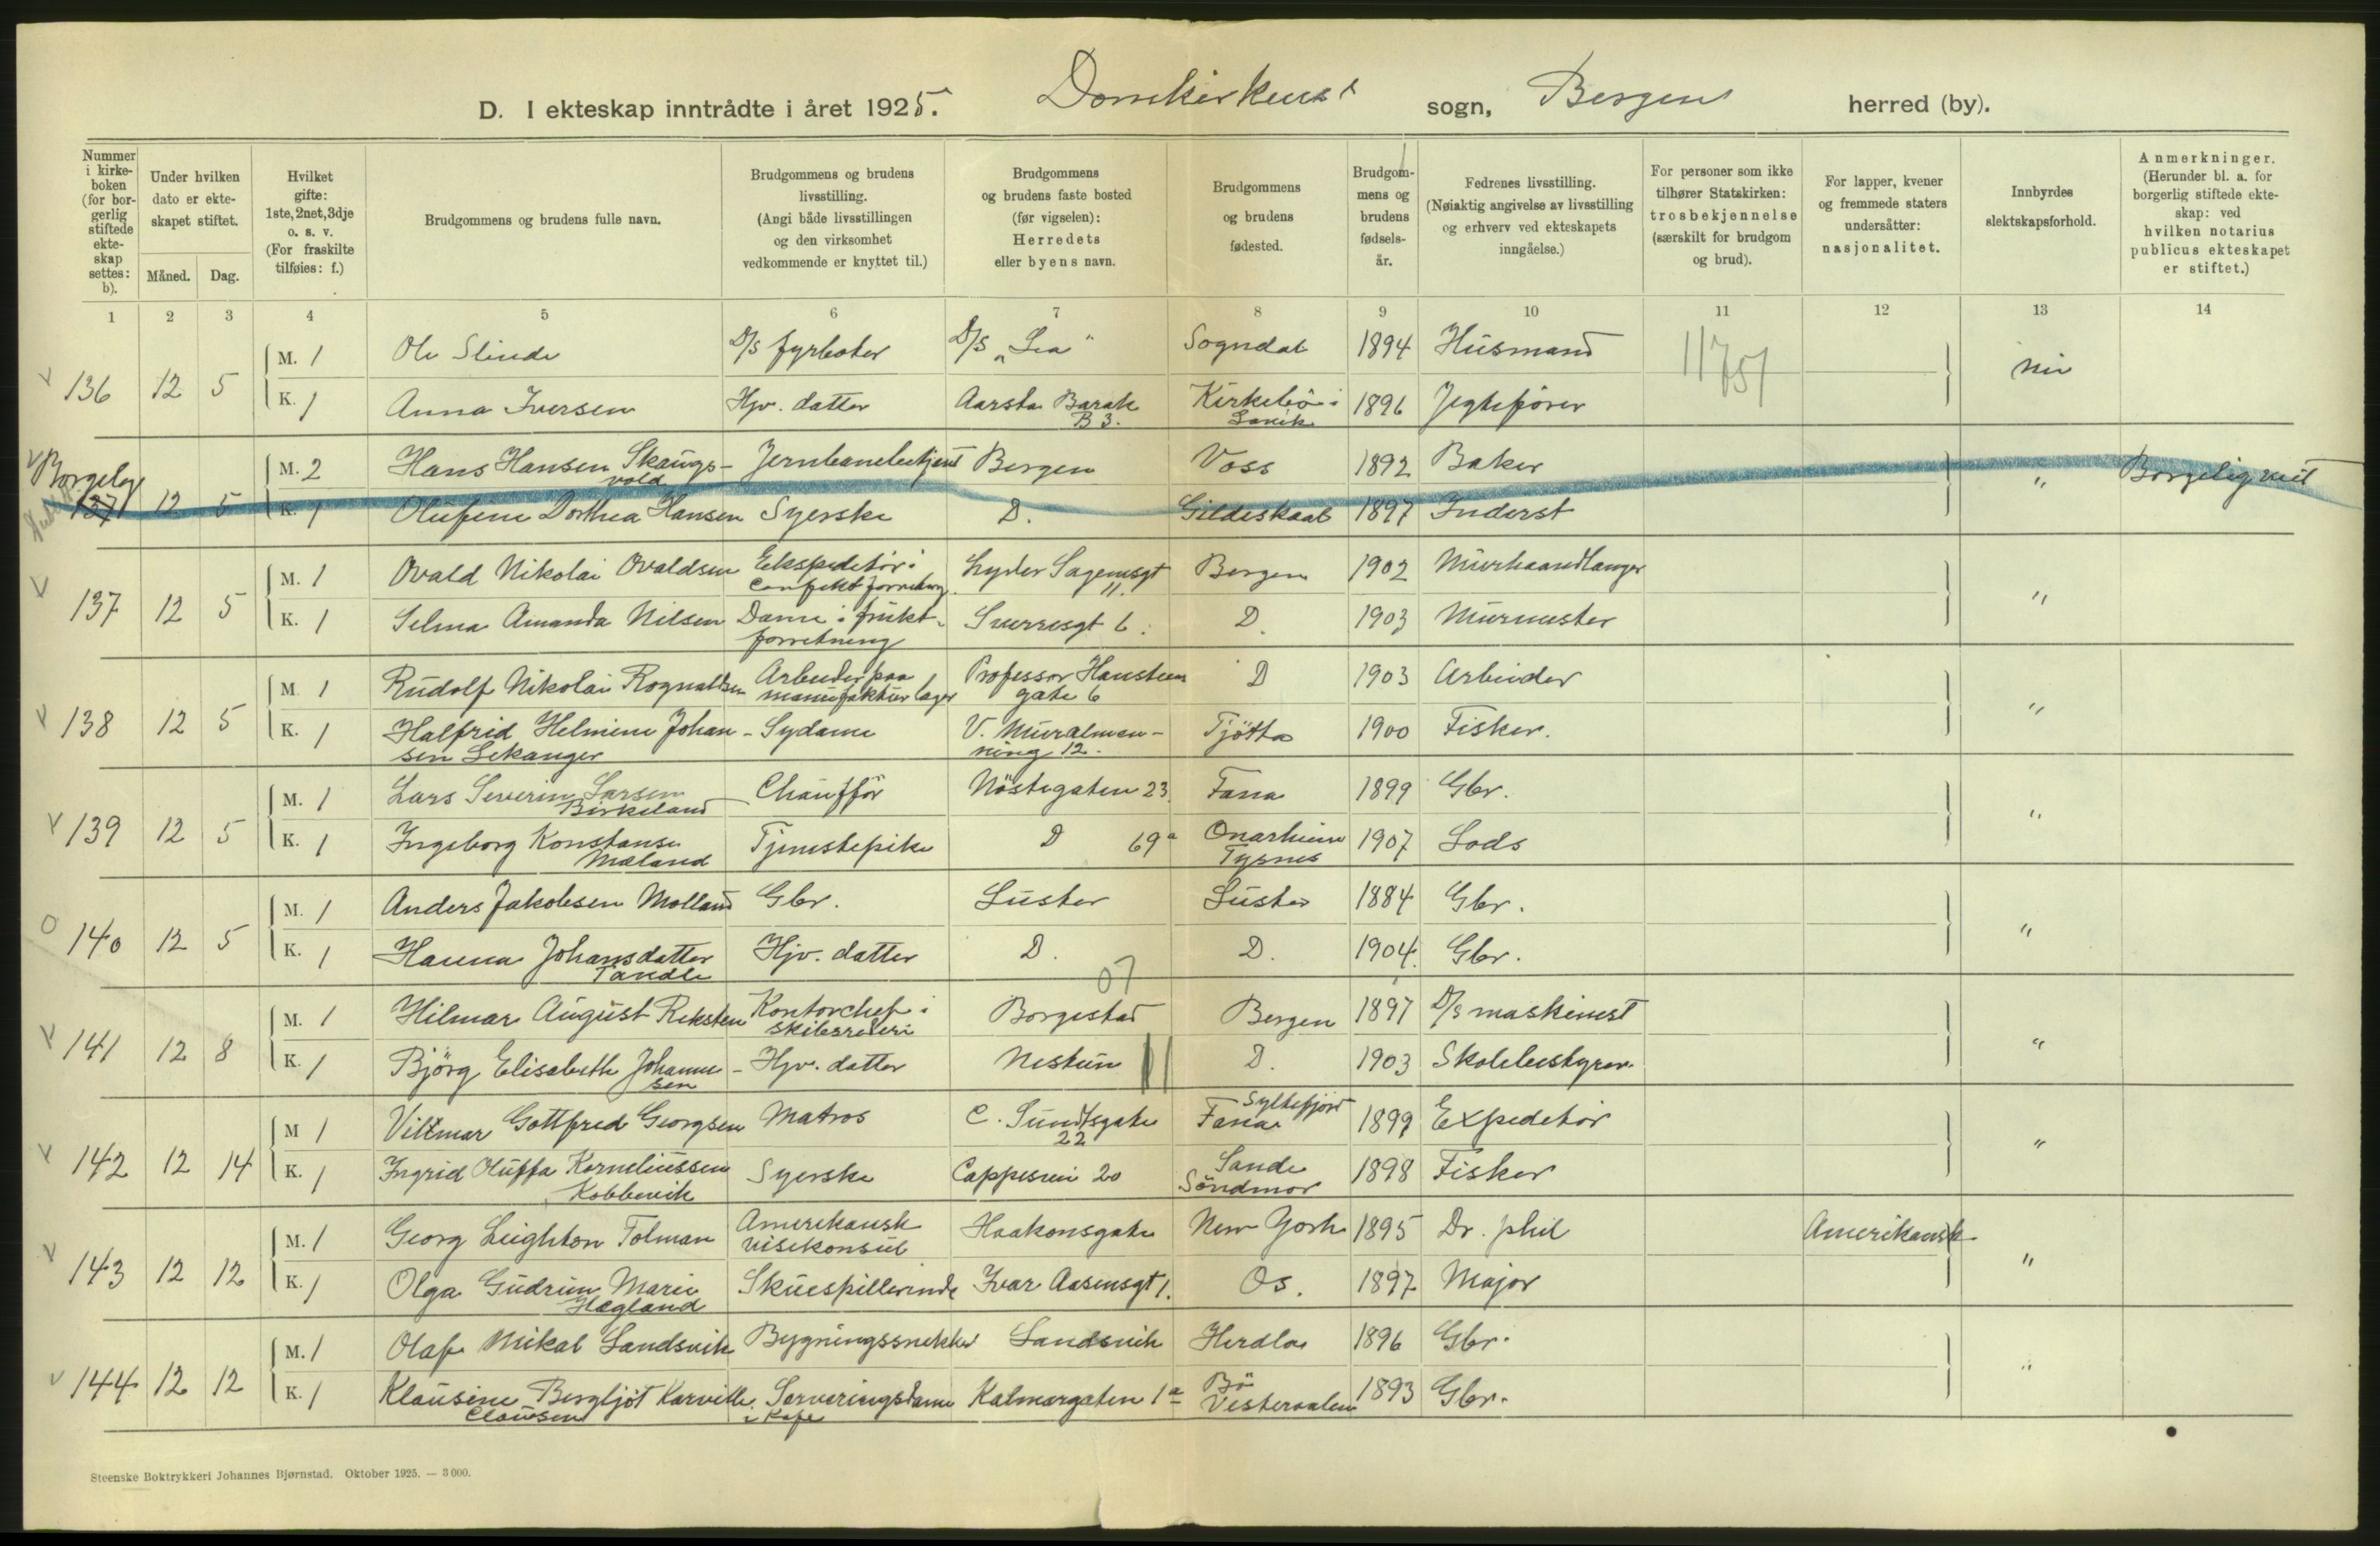 D. I ekteskap inntrådte i året 1925. Domkirkens sogn, Bergen herred (by).
Nummer i kirkeboken (for borgerlig stiftede ekteskap settes: b).
Under hvilken dato er ekteskapet stiftet.
Måned. Dag.
Hvilket gifte: 1ste, 2net, 3dje o. s. v. (For fraskilte tilføies: f.)
Brudgommens og brudens fulle navn.
Brudgommens og brudens livsstilling. (Angi både livsstillingen og den virksomhet vedkommende er knyttet til.)
Brudgommens og brudens faste bosted (før vigselen): Herredets eller byens navn.
Brudgommens og brudens fødested.
Brudgommens og brudens fødselsår.
Fedrenes livsstilling. (Nøiaktig angivelse av livsstilling og erhverv ved ekteskapets inngåelse.)
For personer som ikke tilhører Statskirken: trosbekjennelse (særskilt for brudgom og brud).
For lapper, kvener og fremmede staters undersåtter: nasjonalitet.
Innbyrdes slektskapsforhold.
Anmerkninger. (Herunder bl. a. for borgerlig stiftede ekteskap: ved hvilken notarius publicus ekteskapet er stiftet.)
1 2 3 4 5 6 7 8 9 10 11 12 13 14
136 12 5 M. 1 Ole Slinde D/S fyrbøter D/S „Lea" Sogndal 1894 Husmand nei
K. 1 Anna Iversen Hjv. datter Aarstad Barak B 3. Kirkebö i Lavik 1896 Jegtefører
Borgelig 137 12 5 M. 2 Hans Hansen Skaugsvold Jernbanebetjent Bergen Voss 1892 Baker " Borgelig viet
K. 1 Olufine Dorthea Hansen Syerske D. Gildeskaal 1897 Inderst
137 12 5 M. 1 Ovald Nikolai Ovaldsen Ekspeditør i Confektforretning Lyder Sagensgt 11. Bergen 1902 Murhaandlanger "
K. 1 Selma Amanda Nilsen Dame i fruktforretning Sverresgt 6. D. 1903 Murmester
138 12 5 M. 1 Rudolf Nikolai Rognaldsen Arbeider paa manufakturlager Professor Hansteens gate 6 D 1903 Arbeider "
K. 1 Halfrid Helmine Johansen Lekanger Sydame V. Muralmenning 12. Tjötta 1900 Fisker.
139 12 5 M. 1 Lars Severin Larsen Birkeland Chaufför Nöstegaten 23. Fana 1899 Gbr. "
K. 1 Ingeborg Konstanse Mæland Tjenestepike D 69a Onarheim Tysnes 1907 Lods
140 12 5 M. 1 Anders Jakobsen Molland Gbr. Luster Luster 1884 Gbr. "
K. 1 Hanna Johansdatter Tandle Hjv. datter D. D. 1904. Gbr.
07
141 12 8 M. 1 Hilmar August Reksten Kontorchef i skibsrederi Borgestad Bergen 1897 D/S maskinist "
K. 1 Björg Elisabeth Johannessen Hjv. datter Nestun D. 1903 Skolebestyrer.
142 12 14 M 1 Vilmar Gottfred Georgsen Matros C. Sundtsgate 22 Fana Syltefjord 1899 Expeditør "
K. 1 Ingrid Oluffa Korneliussen Kobbevik Syerske Cappesvei 20 Sande Söndmør 1898 Fisker
143 12 12 M. 1 Georg Leighton Tolman Amerikansk visekonsul Haakonsgate New York 1895 Dr. phil Amerikansk "
K. 1 Olga Gudrun Marie Hagland Skuespillerinde Ivar Aasensgt 1. Os. 1897 Major
144 12 12 M. 1 Olaf Mikal Landsvik Bygningssnekker Landsvik Herdla 1896 Gbr. "
K. 1 Klausine Bergljot Karville Clausen Serveringsdame i Kafe Kalmargaten 1a Bö Vesteraalen 1893 Gbr.
Steenske Boktrykkeri Johannes Bjørnstad. Oktober 1925. — 3 000.